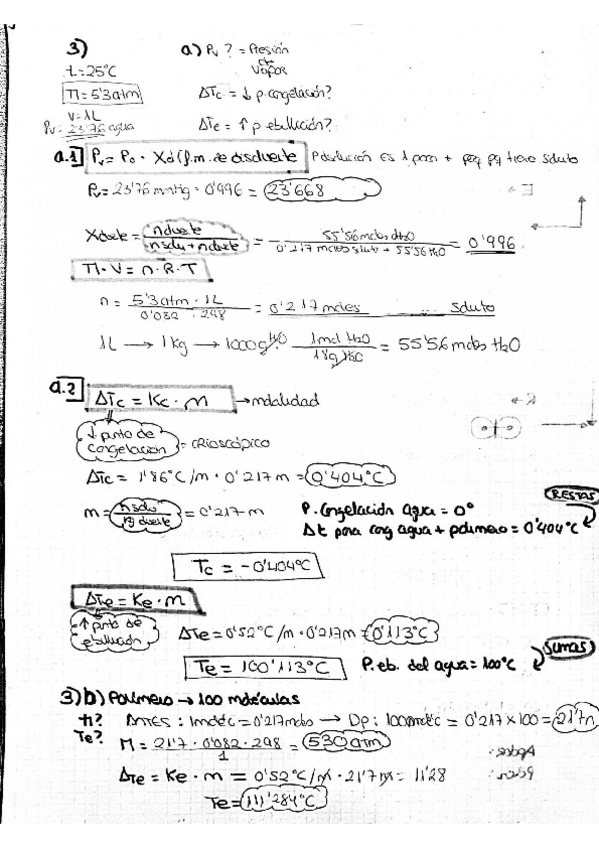 3) a) Pv ? = Presión de Vapor
t = 25°C
Π = 5'3 atm ΔTc = ↓ p. congelación?
V = 1L
Pv = 23'76 agua ΔTe = ↑ p. ebullición?
a.1] Pv = Po · Xd (f.m. de disolvente P disolución es 1 poco + peq pq tiene soluto
Pv = 23'76 mmHg · 0'996 = 23'668
Xdvete = ndvete / nsolu + ndvete = 55'56 moles d H2O / 0'217 moles soluto + 55'56 H2O = 0'996
Π · V = n · R · T
n = 5'3 atm · 1L / 0'082 · 298 = 0'217 moles soluto
1L → 1 kg → 1000 g H2O · 1 mol H2O / 18 g H2O = 55'56 moles H2O
a.2] ΔTc = Kc · m → molalidad
↓ punto de congelación = crioscópico
ΔTc = 1'86 °C/m · 0'217 m = 0'404 °C
RESTAS
m = nsolu / kg dvete = 0'217 m P. congelación agua = 0°
Δt para cong agua + polímero = 0'404°C
Tc = -0'404°C
ΔTe = Ke · m
↑ punto de ebullición ΔTe = 0'52 °C/m · 0'217 m = 0'113°C
SUMAS
Te = 100'113°C P. eb. del agua = 100°C
3) b) Polímero → 100 moléculas
Π? Antes : 1 moléc = 0'217 moles → Dp : 100 moléc = 0'217 × 100 = 21'7 n
Te? Π = 21'7 · 0'082 · 298 / 1 = 530 atm
ΔTe = Ke · m = 0'52 °C/m · 21'7 m = 11'28
Te = 111'284°C